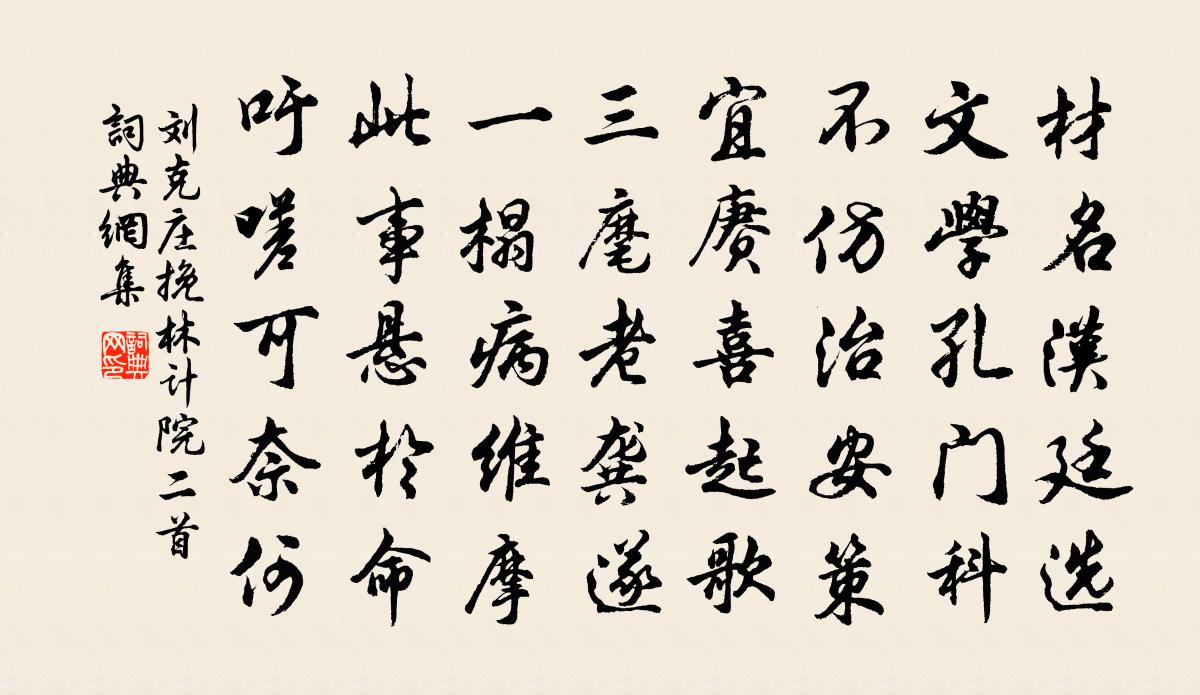 材名漢廷选
文學孔门科
不仿治安策
宜赓喜起歌
三麾老龚遂
一榻病维摩
此事悬於命
吁嗟可奈何
刘克庄挽林计院二首
詞典網集
詞典网印